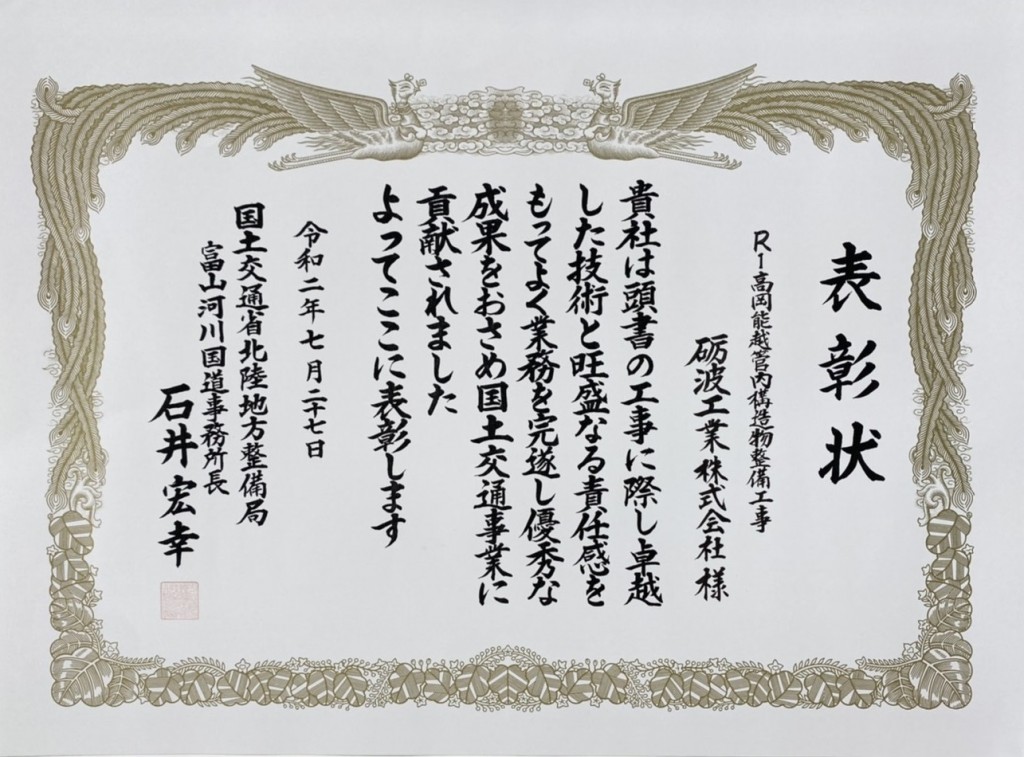 表彰状
R1高岡能越管内構造物整備工事
砺波工業株式会社様
貴社は頭書の工事に際し卓越
した技術と旺盛なる責任感を
もってよく業務を完遂し優秀な
成果をおさめ国土交通事業に
貢献されました
よってここに表彰します
令和二年七月二十七日
国土交通省北陸地方整備局
富山河川国道事務所長
石井宏幸